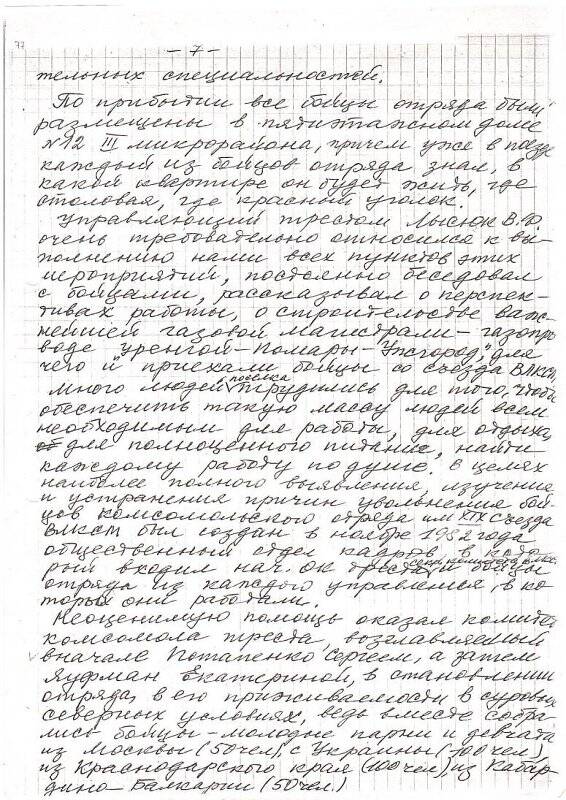 77
- 7 -
тельных специальностей.
По прибытии все бойцы отряда были
размещены в пятиэтажном доме
№12 III микрорайона, причем уже в поезде
каждый из бойцов отряда знал, в
какой квартире он будет жить, где
столовая, где красный уголок.
Управляющий трестом Лысюк В.Ф.
очень требовательно относился к вы-
полнению нами всех пунктов этих
мероприятий, постоянно беседовал
с бойцами, рассказывал о перспек-
тивах работы, о строительстве важ-
нейшей газовой магистрали - газопро
воде "Уренгой-Помары-Ужгород", для
чего и приехали бойцы со съезда ВЛКСМ
Много людей поселка трудились для того, чтобы
обеспечить такую массу людей всем
необходимым для работы, для отдыха,
для полноценного питания, найти
каждому работу по душе. В целях
наиболее полного выявления, изучения
и устранения причин увольнения бой-
цов комсомольского отряда им XIX съезда
ВЛКСМ был создан в ноябре 1982 года
общественный отдел кадров, в кото
рый входил нач. ОК треста, бойцы
отряда из каждого управления, в ко
торых они работали.
Неоценимую помощь оказал комитет
комсомола треста, возглавляемый
вначале Потапенко Сергеем, а затем
Яуфман Екатериной, в становлении
отряда, в его приживаемости в суровых
северных условиях, ведь вместе собра-
лись бойцы - молодые парни и девчата
из Москвы (50 чел), с Украины (100 чел)
из Краснодарского края (100 чел), из Кабар
дино Балкарии (50 чел.)